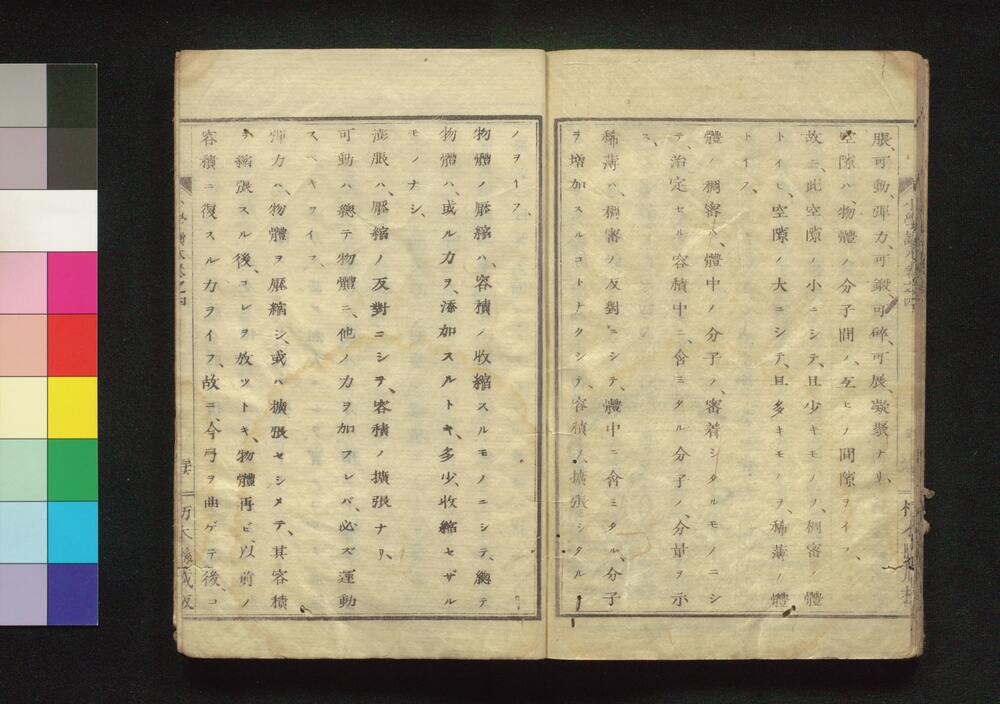 脹、可動、彈力、可鍛、可碎、可展、凝聚ナリ、
空隙ハ、物體ノ分子間ノ、互ヒノ間隙ヲイフ、
故ニ、此空隙ノ小ニシテ、且少キモノヲ、稠密ノ體
トイヒ、空隙ノ大ニシテ、且多キモノヲ、稀薄ノ體
トイフ、
體ノ稠密ハ、體中ノ分子ノ、密着シタルモノニシ
テ、治定セル容積中ニ、含ミタル分子ノ、分量ヲ示
ス、
稀薄ハ、稠密ノ反對ニシテ、體中ニ含ミタル、分子
ヲ増加スルコトナクシテ、容積ノ、擴張シタル
ノヲイフ、
物體ノ壓縮ハ、容積ノ收縮スルモノニシテ、總テ
物體ハ、或ル力ヲ、添加スルトキ、多少、收縮セザル
モノナシ、
膨脹ハ、壓縮ノ反對ニシテ、容積ノ擴張ナリ、
可動ハ、總テ物體ニ、他ノ力ヲ加フレバ、必ズ運動
スベキヲイフ、
彈力ハ、物體ヲ壓縮シ、或ハ擴張セシメテ、其容積
ヲ縮張スル後、コレヲ放ツトキ、物體再ビ、以前ノ
容積ニ復スル力ヲイフ、故ニ、今弓ヲ曲ゲテ後、コ